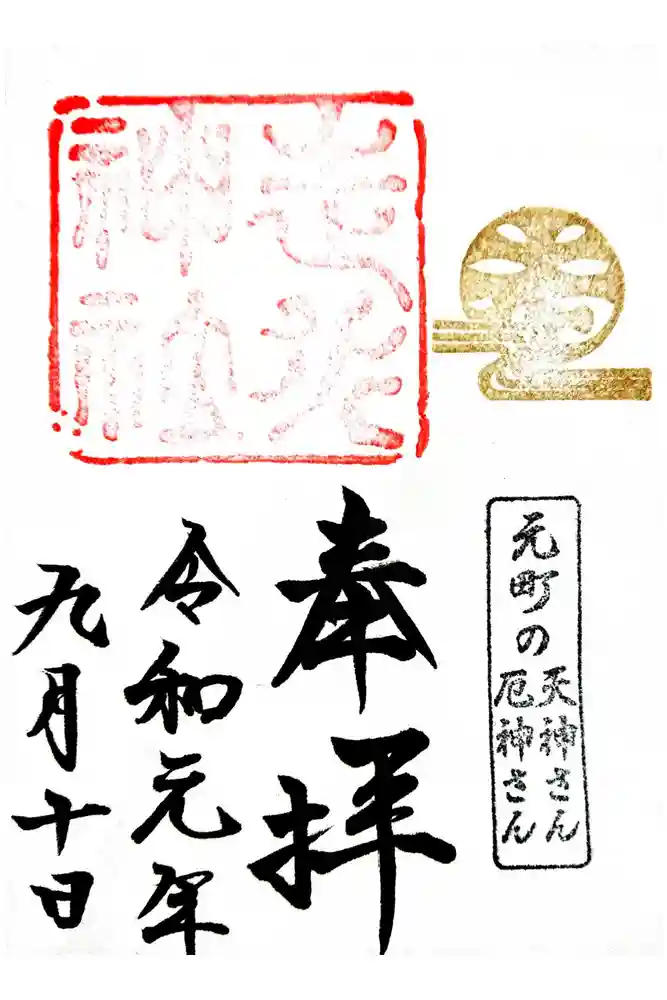 走水
神社
元町の
天神さん
厄神さん
奉拝
令和元年
九月十日